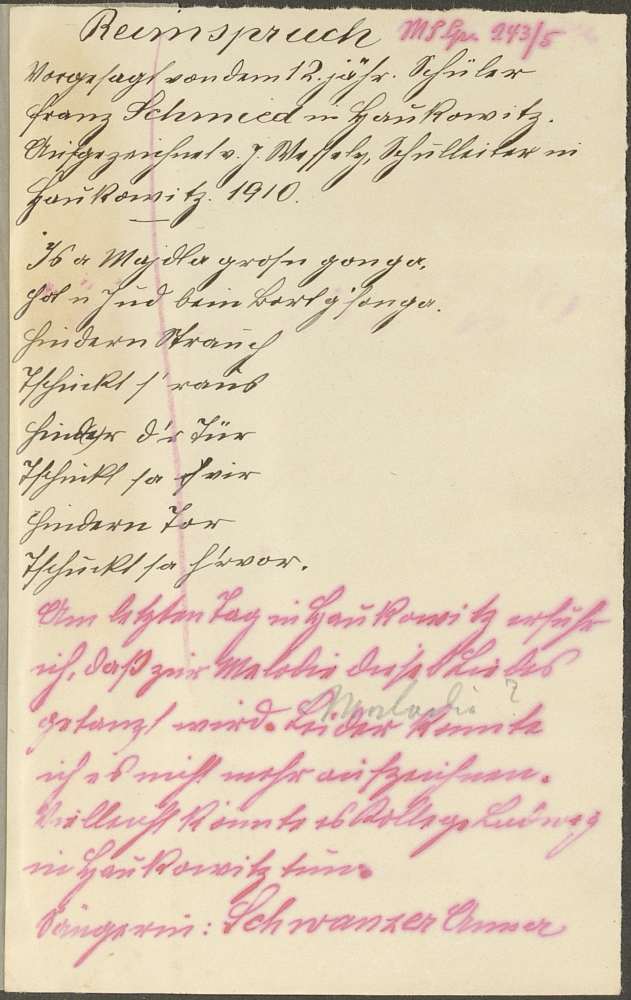 Reimspruch MS Gr. 243/5
Vorgesagt von dem 12. jähr. Schüler
Franz Schmied in Haukowitz.
Aufgezeichnet v. J. Wessely, Schulleiter in
Haukowitz. 1910.
Is a Majdla grosn gonga,
hot n Jud bein Bort g'fonga.
Hindern Strauch
Tschuckt s' raus
Hinder d'r Tür
Tschuckt sa 
Hindern Tor
Tschuckt sa h'rvor.
Am letzten Tag in Haukowitz erfuhr
ich, daß zur Melodie dieses Liedes
Melodie ?
getanzt wird. Leider konnte
ich es nicht mehr aufzeichnen.
Vielleicht könnte es Kollege Ludwig
in Haukowitz tun.
Sängerin: Schwanzer Anna